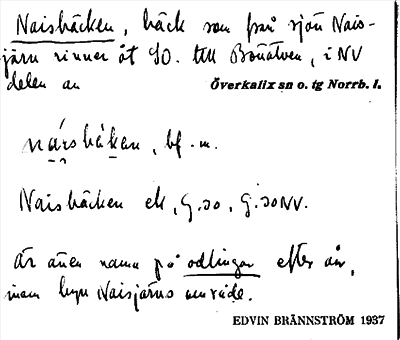 Naisbäcken, bäck som från sjön Nais-
järn rinner åt SO. till Bönälven, i NV
delen av Överkalix sn o. tg Norrb. l.
näisbäken, bf. m.
Naisbäcken ek, G.30, G.30NV.
är även namn på odlingar efter ån,
inom byn Naisjärns område.
EDVIN BRÄNNSTRÖM 1937